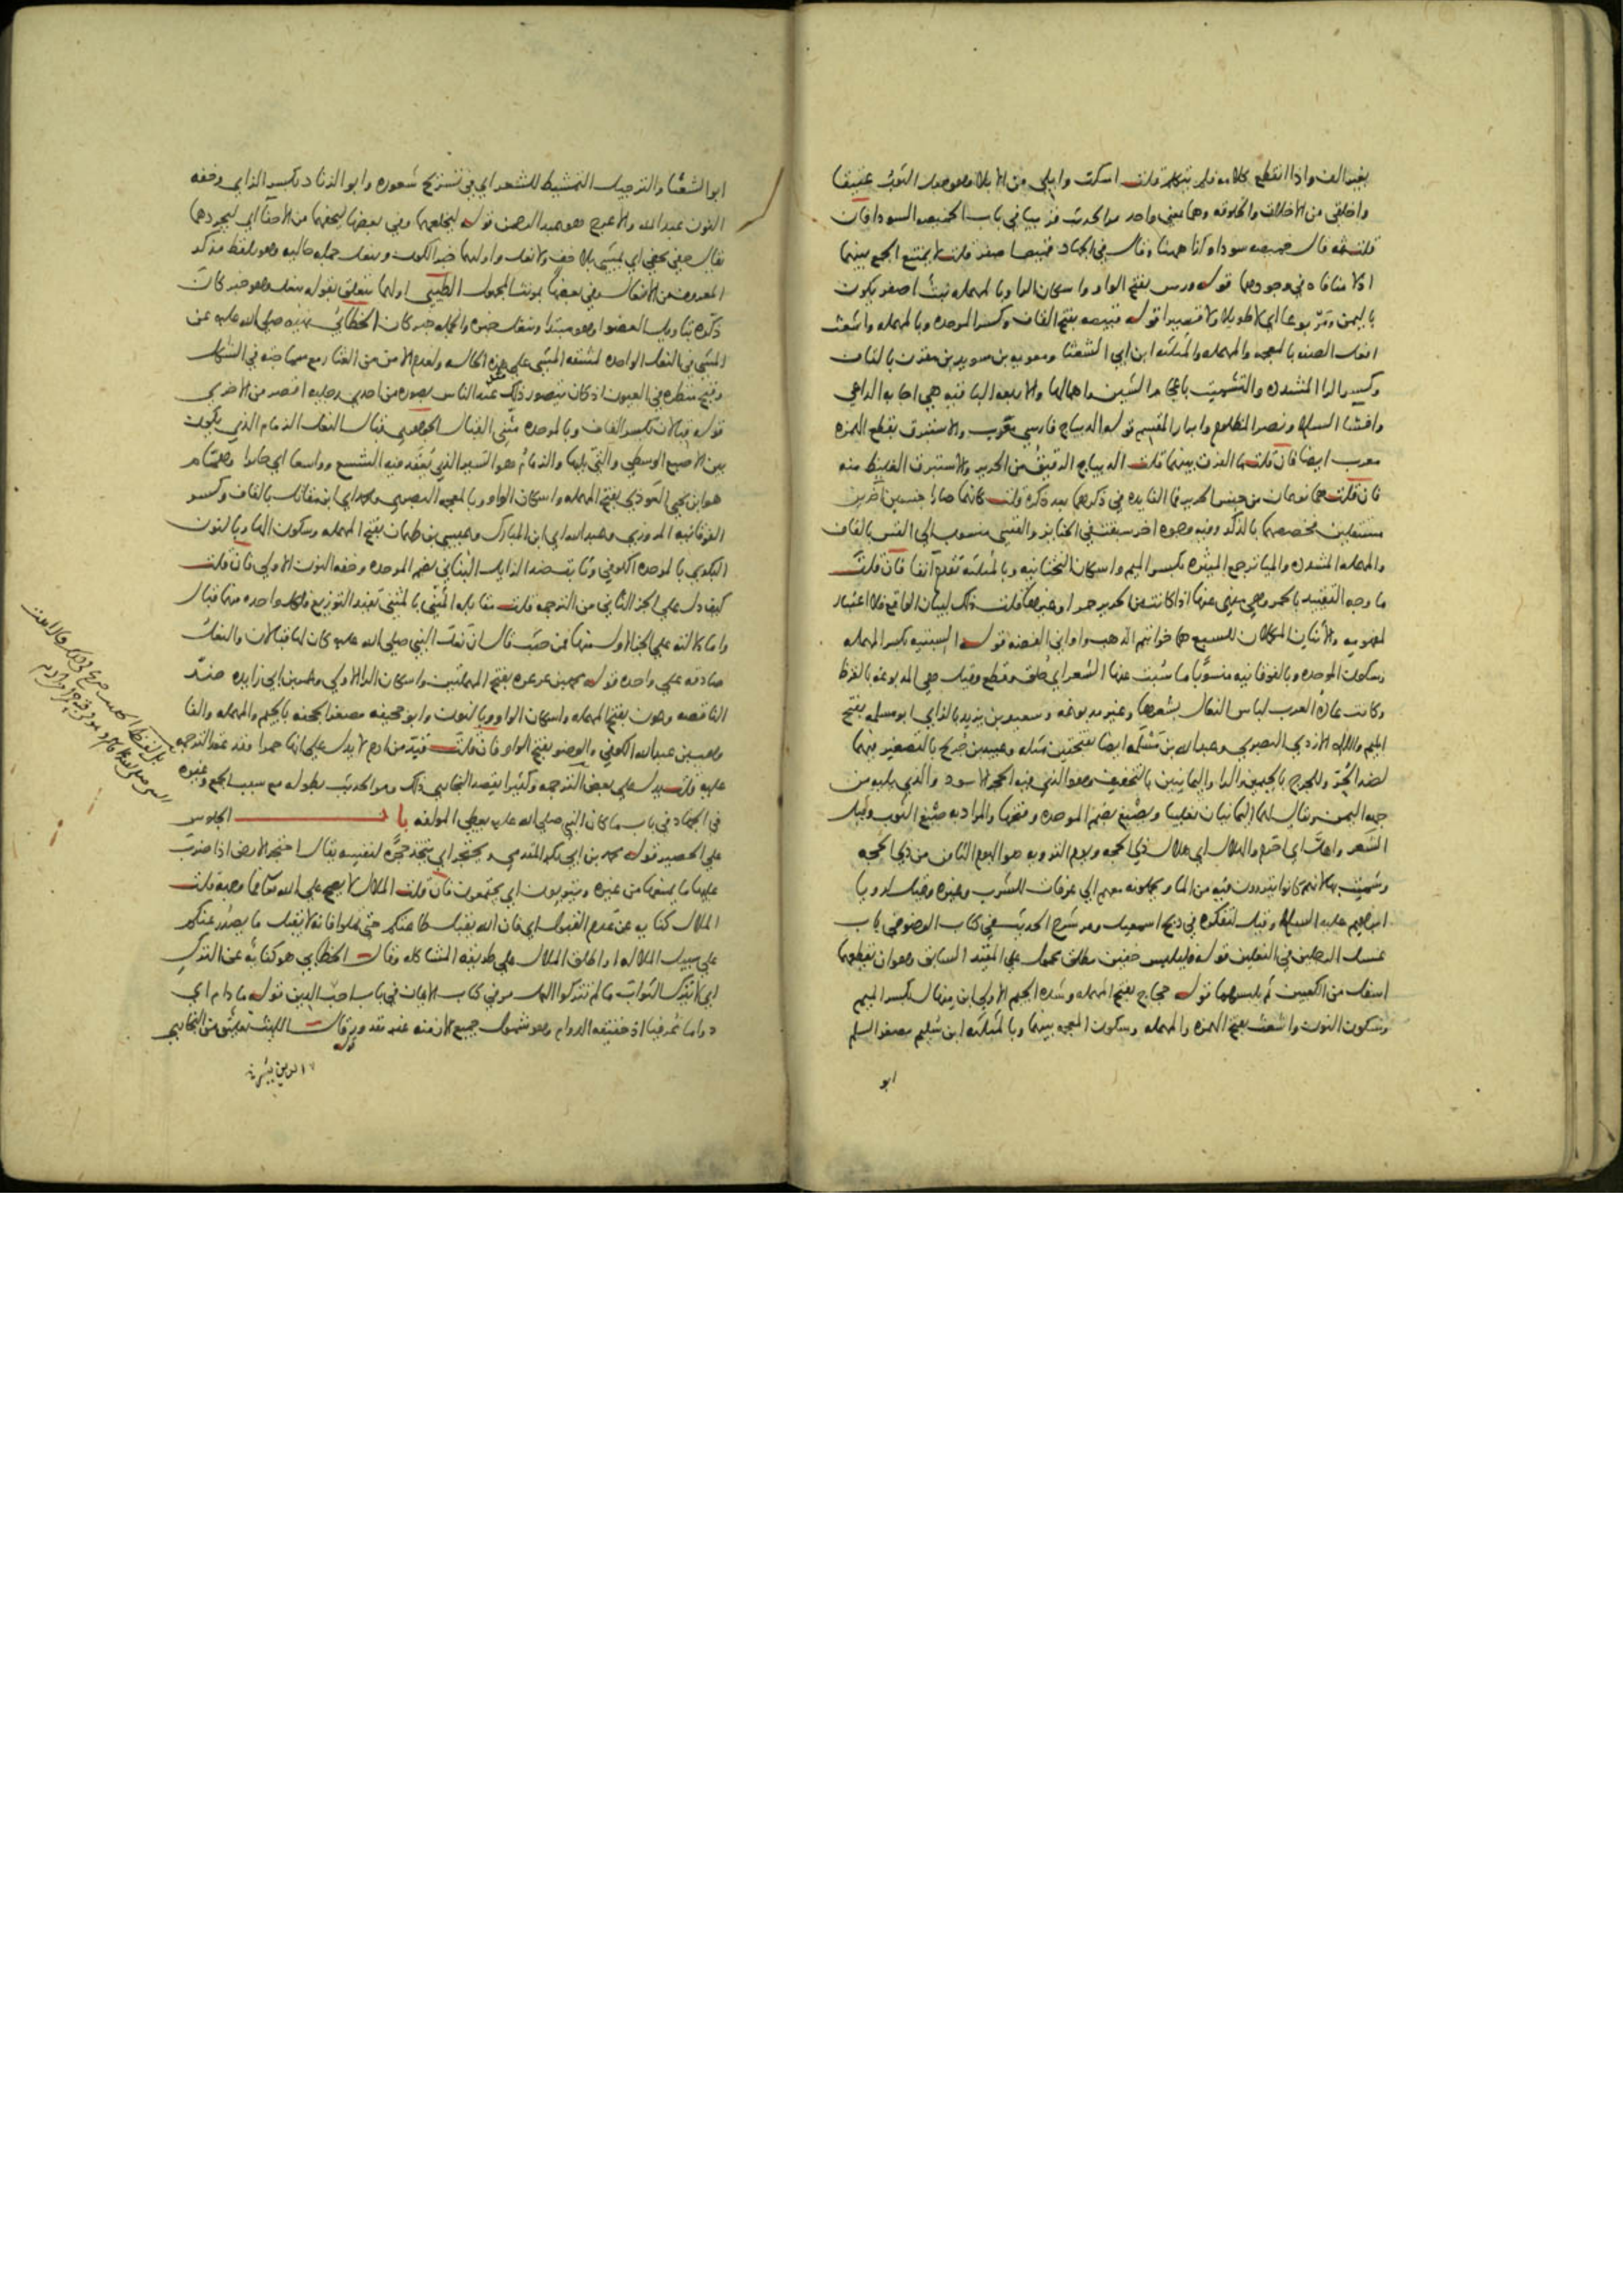 بغير الف واذا انقطع كلامه فلم يتكلم قلت اسكت وابلي من الابلا وهو جعل الثوب عتيقا
واخلقي من الاخلاق والخلوقه وهما بمعنى واحد مر الحديث قريبا في باب الخميصه السودا فان
قلت ثمه قال خميصه سودا وكذا ههنا وقال في الجهاد قميصا صفر قلت لا يمتنع الجمع بينهما
اذ لا منافاه في وجودهما قوله ورس بفتح الواو واسكان الرا وبالمهمله نبت اصفر يكون
باليمن ومربوعا اي لا طويلا ولا قصيرا قوله قبيصه بفتح القاف وكسر الموحده وبالمهمله واشعث
افعل الصفه بالمعجمه والمهمله والمثلثه ابن ابي الشعثا ومعويه بن سويد بن مقرن بالقاف
وكسر الرا المشدده والتشميت باعجام الشين واهمالها والاربعه الباقيه هي اجابه الداعي
وافشا السلام ونصر المظلوم وابرار المقسم قوله الديباج فارسي معرب والاستبرق بقطع الهمزه
معرب ايضا فان قلت ما الفرق بينهما قلت الديباج الرقيق من الحرير والاستبرق الغليظ منه
فان قلت هما نوعان من جنس الحرير فما الفايده في ذكرهما بعد ذكره قلت كانهما صارا جنسين اخرين
مستقلين فخصصهما بالذكر وفيه وجوه اخر سبقت في الجنايز والقسي منسوب الى القس بالقاف
والمهمله المشدده والمياثر جمع الميثره بكسر الميم واسكان التحتانيه وبالمثلثه تقدم انفا فان قلت
ما وجه التقييد بالحمر وهي منهي عنها اذا كانت من الحرير حمرا وغيرها قلت ذلك لبيان الواقع فلا اعتبار
لمفهومه والاثنان المكملان للسبع هما خواتيم الذهب واواني الفضه قوله السبتيه بكسر المهمله
وسكون الموحده وبالفوقانيه منسوبا ما سبت عنها الشعر اي حلق وقطع وقيل هي المدبوغه بالقرظ
وكانت عاده العرب لباس النعال بشعرها وغير مدبوغه وسعيد بن يزيد بالزاي ابو مسلمه بفتح
الميم واللام الازدي البصري وعبد الله بن مسلمه ايضا بفتحتين مثله وعبيد بن جريج بالتصغير فيهما
لضد الحر وللجرج بالجيمين والرا واليمانيين بالتخفيف وهو الذي فيه الحجر الاسود والذي يليه من
جهه اليمن ويقال لهما اليمانيان تغليبا ويصبغ بضم الموحده وفتحها والمراد به صبغ الثوب وقيل
الشعر واهل اي احرم والهلال اي هلال ذي الحجه ويوم الترويه هو اليوم الثامن من ذي الحجه
وسميت بها لانهم كانوا يتزودون فيه من الماء ويحملونه معهم الى عرفات للشرب وغيره وقيل لرويا
ابراهيم عليه السلام وقيل لتفكره في ذبح اسمعيل ومر شرح الحديث في كتاب الوضو في باب
غسل الرجلين في النعلين قوله فليلبس خفين مطلق محمول على المقيد السابق وهو ان يقطعهما
اسفل من الكعبين ثم يلبسهما قوله حجاج بفتح المهمله وشده الجيم الاولى ابن منهال بكسر الميم
وسكون النون واشعث بفتح الهمزه والمهمله وسكون المعجمه بينهما وبالمثلثه ابن سليم مصغر السلم
ابو
ابو الشعثا والترجيل التمشيط للشعر اي في تسريح شعوره وابو الزناد بكسر الزاي وخفه
النون عبد الله والاعرج هو عبد الرحمن قوله ليخلعهما وفي بعضها ليحفهما من الاحفا اي ليجردهما
يقال حفي يحفى اي يمشي بلا خف ولا نعل واولهما خبر الكون وينعل جمله حاليه وهو بلفظ مذكر
المعروف من الانعال وفي بعضها مونثا المجهول الطيبي اولهما يتعلق بقوله ينعل وهو خبر كان
ذكره بتاويل العضو او هو مبتدا وينعل خبره والجمله خبر كان الخطابي نهيه صلى الله عليه عن
المشي في النعل الواحده لمشقه المشي على هذه الحاله ولعدم الامن من العثار مع سماجته في الشكل
وقبح منظره في العيون اذ كان يتصور ذلك عند الناس بصوره من احدى رجليه اقصر من الاخرى
قوله قبالان بكسر القاف وبالموحده مثنى القبال الجوهري قبال النعل الزمام الذي يكون
بين الاصبع الوسطى والتي يليها والزمام هو السير الذي يعقد فيه الشسع وواسعا اي جايزا وهمام
هو ابن يحيى العوذي بفتح المهمله واسكان الواو وبالمعجمه البصري ومحمد اي ابن مقاتل بالقاف وكسر
الفوقانيه المروزي وعبد الله اي ابن المبارك وعيسى بن طهمان بفتح المهمله وسكون الهاء وبالنون
البكري بالموحده الكوفي وثابت ضد الزايل البناني بضم الموحده وخفه النون الاولى فان قلت
كيف دل على الجزء الثاني من الترجمه قلت مقابله المثنى بالمثنى تفيد التوزيع فلكل واحده منهما قبال
واما دلالته على الجزء الاول منها فمن حيث قال ان نعل النبي صلى الله عليه كان لها قبالان والنعل
صادقه على واحده قوله محمد بن عرعره بفتح المهملتين واسكان الرا الاولى وعمر بن ابي زايده ضد
الناقصه وعون بفتح المهمله واسكان الواو وبالنون وابو جحيفه مصغر الجحفه بالجيم والمهمله والفا
وهب بن عبد الله الكوفي والوضو بفتح الواو فان قلت قبه من ادم لا يدل على انها حمرا وقد عقد الترجمه
عليه قلت يدل على بعض الترجمه وكثيرا يقصد البخاري ذلك ومر الحديث بطوله مع سبب الجمع وغيره
في الجهاد في باب ما كان النبي صلى الله عليه يعطي المولفه باب الجلوس
على الحصير قوله محمد بن ابي بكر المقدمي ويحتجر اي يتخذ حجره لنفسه يقال احتجر الارض اذا ضرب
عليها ما يمنعها من غيره ويثوبون اي يجتمعون فان قلت الملال لا يصح على الله تعالى فما وجهه قلت
الملال كنايه عن عدم القبول اي فان الله يقبل طاعتكم حتى تملوا فانه لا يقبل ما يصدر عنكم
على سبيل الملاله او اطلق الملال على طريقه المشاكله وقال الخطابي هو كنايه عن الترك
اي لا يترك الثواب ما لم تتركوا العمل مر في كتاب الايمان في باب احب الدين قوله ما دام اي
دواما عرفيا اذ حقيقه الدوام وهو شمول جميع الازمنه غير مقدور قال الليث تعليق من البخاري